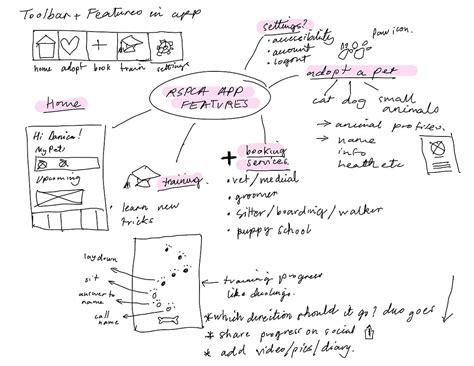 Toolbar + Features in app
home adopt book train settings
settings?
• accessibility
• account
• logout
paw icon.
adopt a pet
cat dog small
animals
→ animal profiles.
→ name
info
health etc
RSPCA APP
FEATURES
Home
Hi Danica!
My Pets
Upcoming
training.
• learn new
tricks
+ booking
services.
• vet/medical
• groomer
• sitter/boarding/walker
• puppy school
lay down
sit
answer to
name
call
name
training progress
like duolingo.
* which direction should it go? duo goes
* share progress on social
* add video/pics/diary.